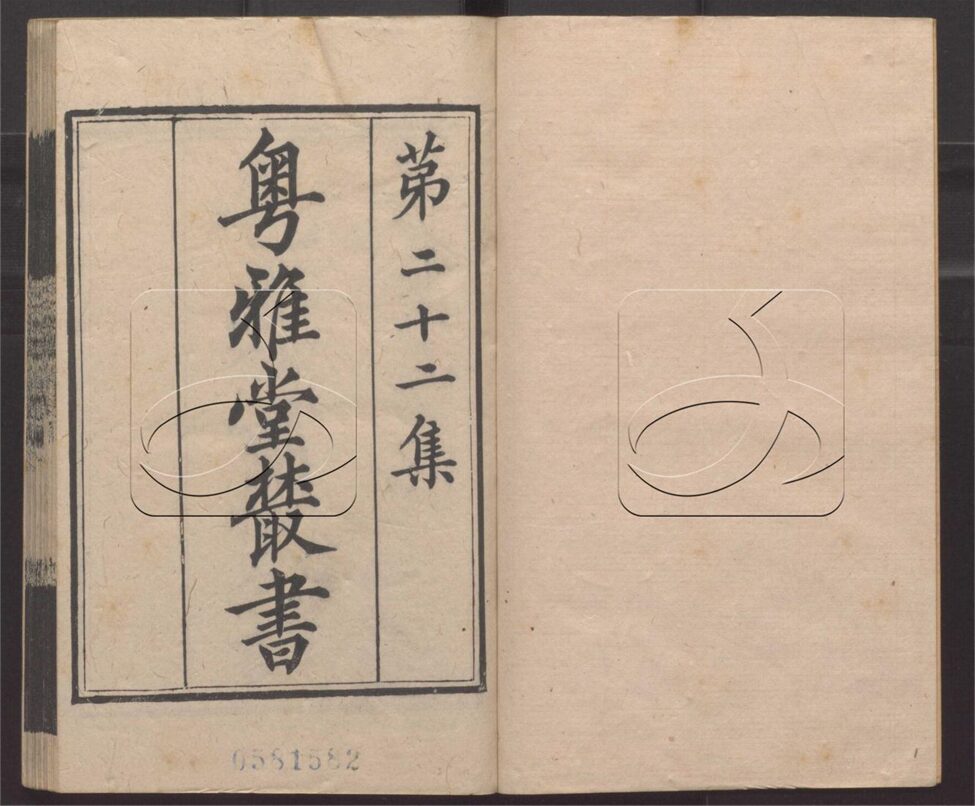 第二十二集
粤雅堂叢書
0581582